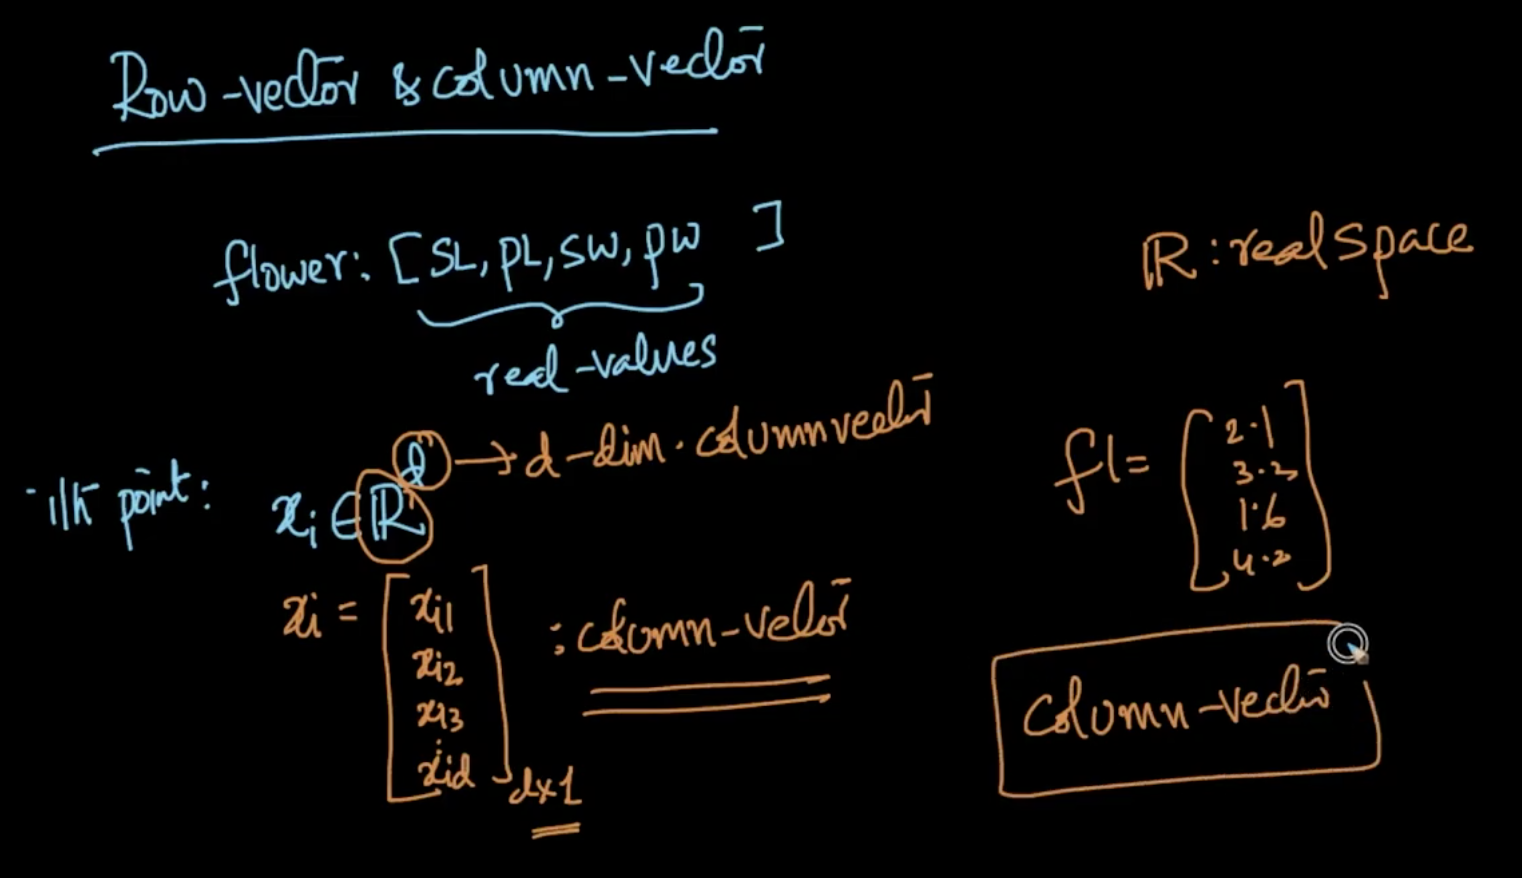 Row-vector & column-vector
flower: [SL, PL, SW, PW ]
real-values
ℝ: real space
ith point: xi ∈ ℝ^d → d-dim. column vector
f1 = [2.1
3.2
1.6
4.2]
xi = [xi1
xi2
xi3
⋮
xid] d×1
: column-vector
column-vector